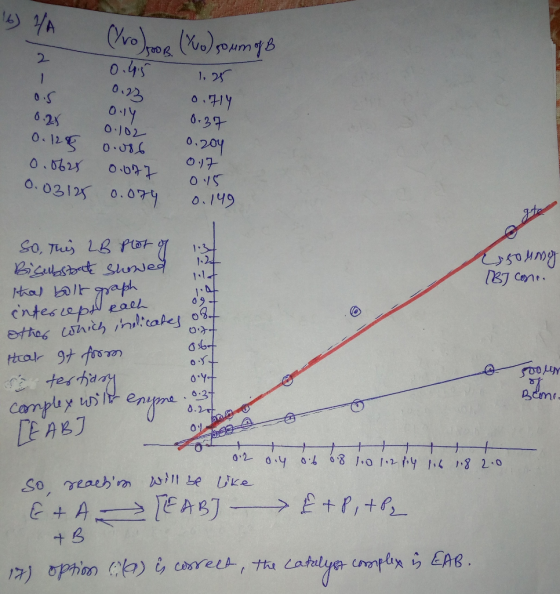 16) 1/A (1/v0)500B (1/v0)50μm of B
2 0.45 1.25
1 0.23 0.714
0.5 0.14 0.37
0.25 0.102 0.204
0.125 0.086 0.17
0.0625 0.077 0.15
0.03125 0.074 0.149
So, This LB Plot of
Bisubstrate showed
that both graph
intercept each
other which indicates
that It form
tertiary
complex with enzyme.
[EAB]
1.3
1.2
1.1
1.0
0.9
0.8
0.7
0.6
0.5
0.4
0.3
0.2
0.1
0
0.2 0.4 0.6 0.8 1.0 1.2 1.4 1.6 1.8 2.0
50 μm of
[B] conc.
500 μm
of
B conc.
So, reaction will be like
E + A ⇌ [EAB] ⟶ E + P1 + P2
+ B
17) option (a) is correct, the catalyst complex is EAB.